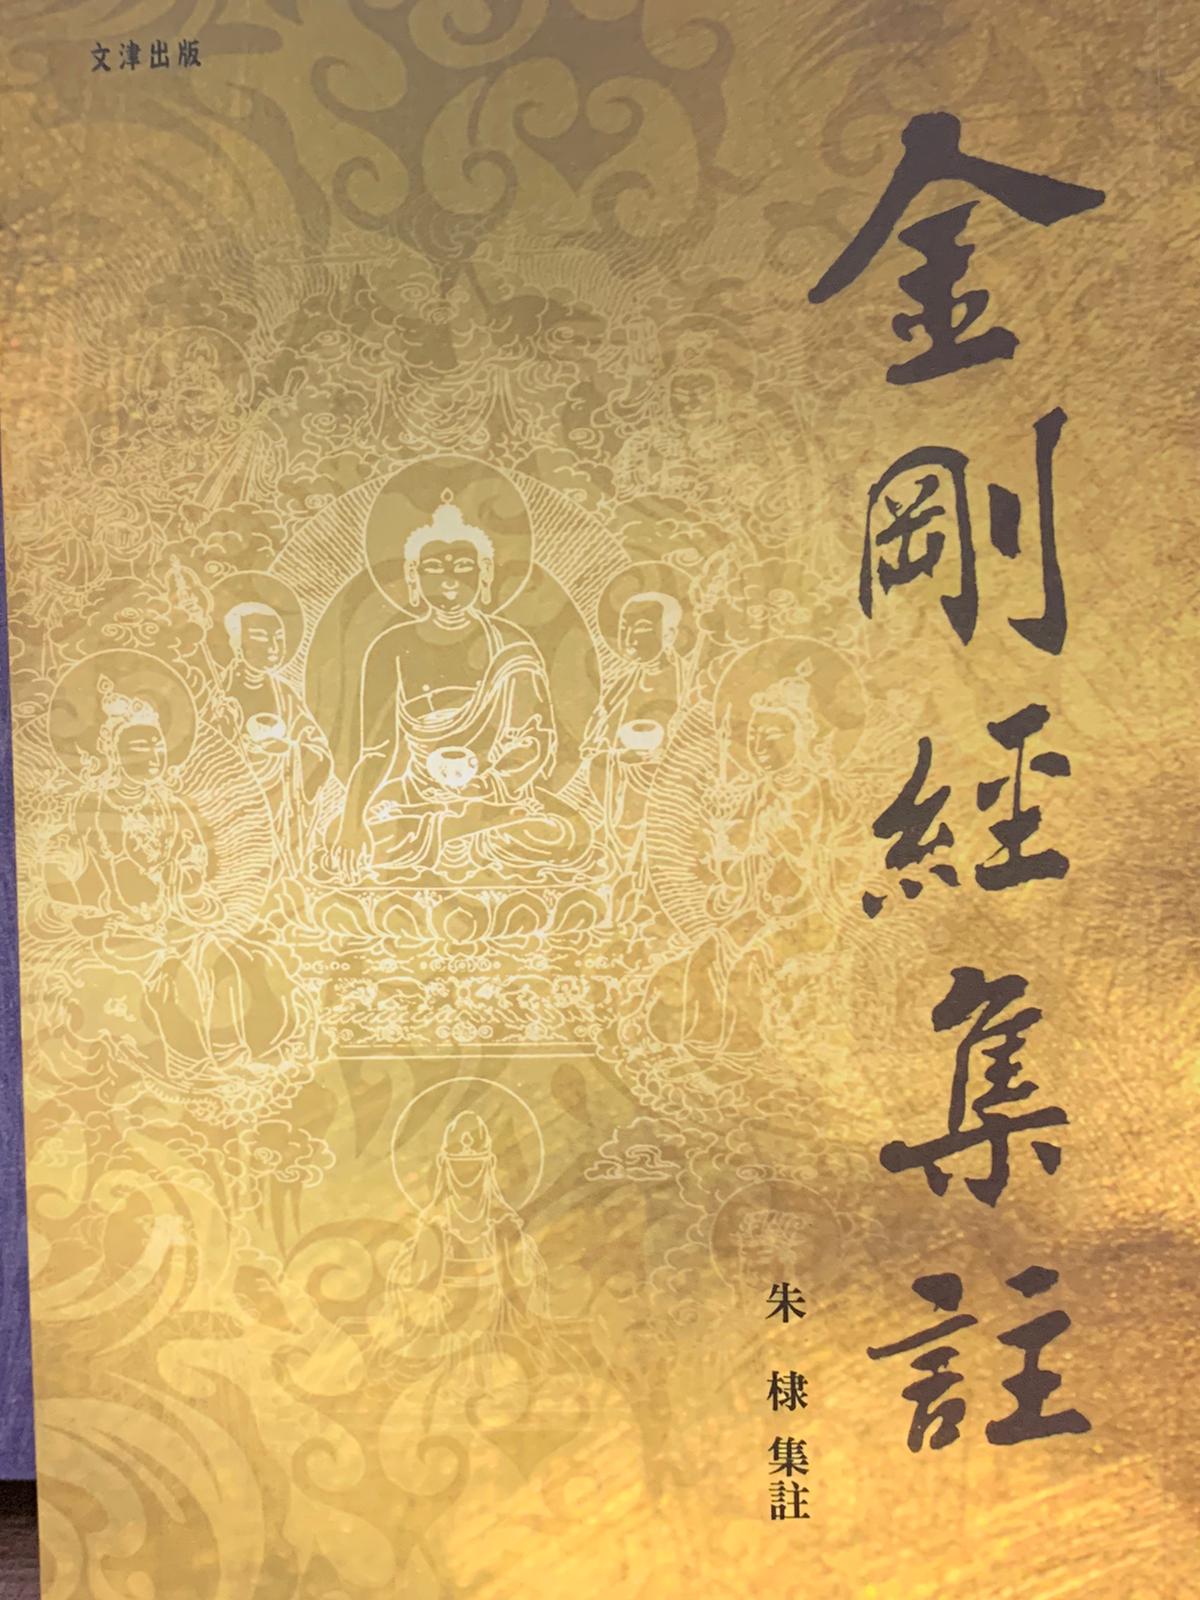 文津出版
金剛經集註
朱棣 集註